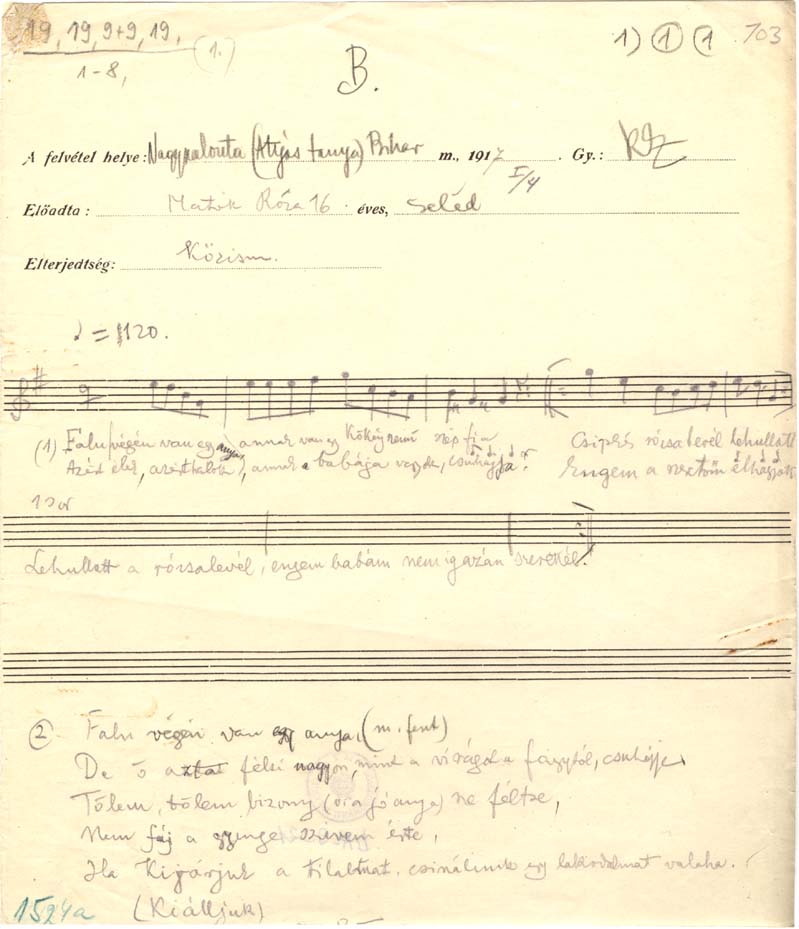 19, 19, 9+9, 19,
1-8,
(1.)
1) ① (1 703
B.
A felvétel helye: Nagyszalonta (Atyás tanya) Bihar m., 1917 I/4 . Gy.: KZ
Előadta: Matók Róza 16. éves, seléd
Elterjedtség: Közism.
= 120.
(1) Falu végén van egy anya, annak van egy kökény szemű szép fia Csipkés rózsalevél lehullott
Azért élek, azért halok, annak a babája vagyok, csuhajja. Engem a szeretőm elhagyott
1 sor
Lehullott a rózsalevél, engem babám nem igazán szerettél.
② Falu végén van egy anya, (m. fent)
De ő aztat félti nagyon, mint a virágot a fagytól, csuhajja.
Tőlem, tőlem bizony a jó anya) ne féltse,
Nem fáj a gyenge szívem érte,
Ha kijárjuk a tilalmat, csinálunk egy lakodalmat valaha.
(Kiálljuk)
1524a